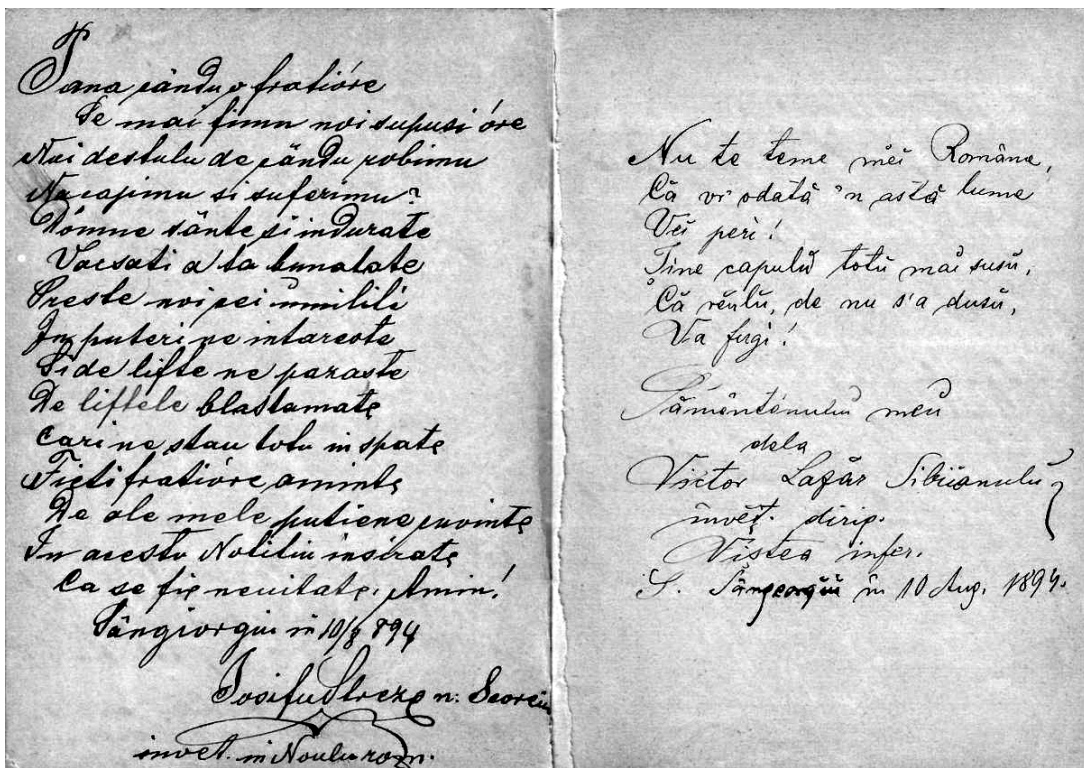 Pana cându o fratióre
Se mai fimu noi supusi óre
Nu-i destulu de cându robimu
Nacajimu si suferimu?
Dómne sânte si indurate
Varsati a ta bunatate
Preste noi cei umiliti
In puteri ne intareste
Si de lifte ne pazaste
De liftele blastamate
Cari ne stau totu in spate
Fieti fratióre aminte
De ale mele putiene cuvinte
In acestu Notitiu insirate
Ca se fie neuitate. Amin!
Sângiorgiu in 10/8 894
Iosifu n:
invet. in Noulu rom.
Nu te teme měi Române,
Că vr' odată 'n astă lume
Vei peri!
Tine capulŭ totŭ mai susŭ,
Că rěulŭ, de nu s'a dusŭ,
Va fugi!
Pământénului meŭ
dela
Victor Lazăr Sibiianulŭ
învěț. dirig.
Viștea infer.
S. Sângeorgiŭ în 10 Aug. 1894.